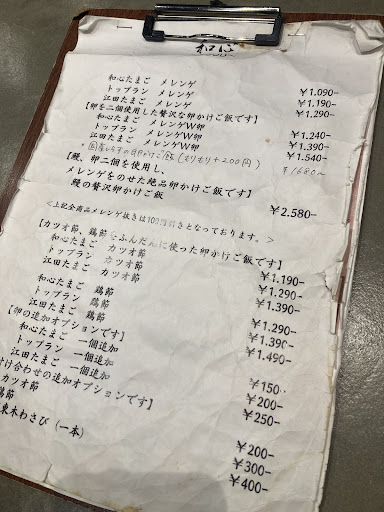 和心
和心たまご メレンゲ ¥1.090-
トップラン メレンゲ ¥1.190-
江田たまご メレンゲ ¥1.290-
【卵を二個使用した贅沢な卵かけご飯です】
和心たまご メレンゲW卵 ¥1.240-
トップラン メレンゲW卵 ¥1.390-
江田たまご メレンゲW卵 ¥1.540-
(もりもり+200円) ¥1680-
【鰻、卵二個を使用し、
メレンゲをのせた絶品卵かけご飯です】
鰻の贅沢卵かけご飯 ¥2.580-
<上記全商品メレンゲ抜きは100円引きとなっております。>
【カツオ節、鶏節をふんだんに使った卵かけご飯です】
和心たまご カツオ節 ¥1.190-
トップラン カツオ節 ¥1.290-
江田たまご カツオ節 ¥1.390-
和心たまご 鶏節 ¥1.290-
トップラン 鶏節 ¥1.390-
江田たまご 鶏節 ¥1.490-
【卵の追加オプションです】
和心たまご 一個追加 ¥150-
トップラン 一個追加 ¥200-
江田たまご 一個追加 ¥250-
付け合わせの追加オプションです】
カツオ節 ¥200-
鶏節 ¥300-
東木わさび(一本) ¥400-